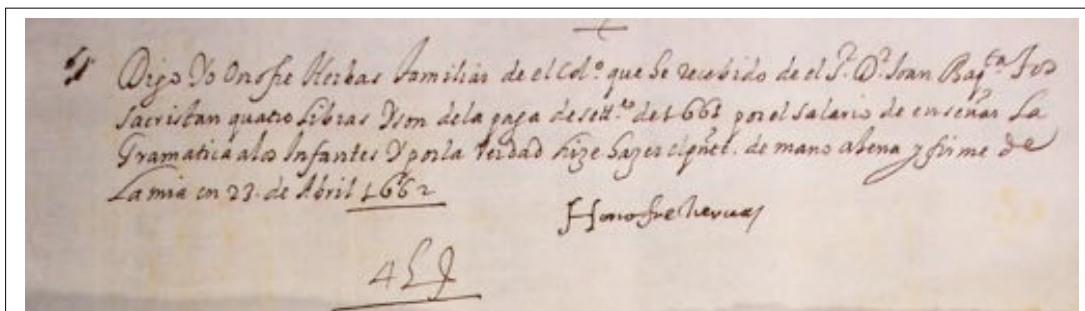 Digo Yo Onofre Herbas familiar de el Col.º que he recebido de el S.r D.r Joan Bap.ta
Sacristan quatro Libras Y son de la paga de sett.e de 1661 por el salario de enseñar La
Gramatica a los Infantes Y por la Verdad hize hazer el pñte. de mano abena y firme de
La mia en 23. de Abril 1662
Honofre hervas
4 L